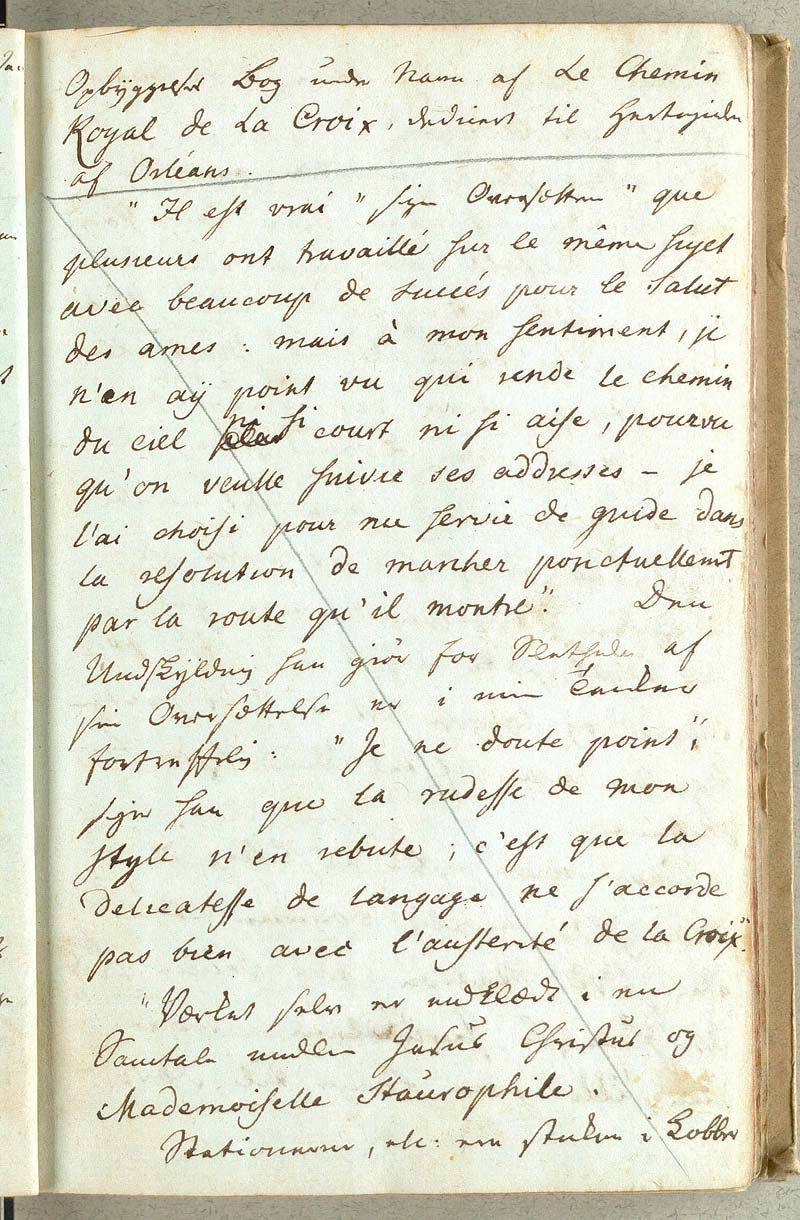 Opbyggelses Bog under Navn af Le Chemin
Royal de La Croix, dediceret til Hertuginden
af Orléans.
"Il est vrai" siger Oversætteren "que
plusieurs ont travaillé sur le même sujet
avec beaucoup de succés pour le salut
des ames: mais à mon sentiment, je
n'en aÿ point vu qui rende le chemin
du ciel ni si court ni si aise, pourvu
qu'on veulle suivre ses addresses – je
l'ai choisi pour me servir de guide dans
la resolution de marcher ponctuellemt
par la route qu'il montre". Den
Undskyldning han giör for Sletheden af
sin Oversættelse er i mine Tanker
fortreffelig: "Je ne doute point",
siger han que la rudesse de mon
style n'en rebute; c'est que la
delicatesse de langage ne s'accorde
pas bien avec l'austerité de la Croix".
"Værket selv er indklædt i en
Samtale mellem Jesus Christus og
Mademoiselle Staurophile.
Stationerne, etc: ere stukne i Kobber